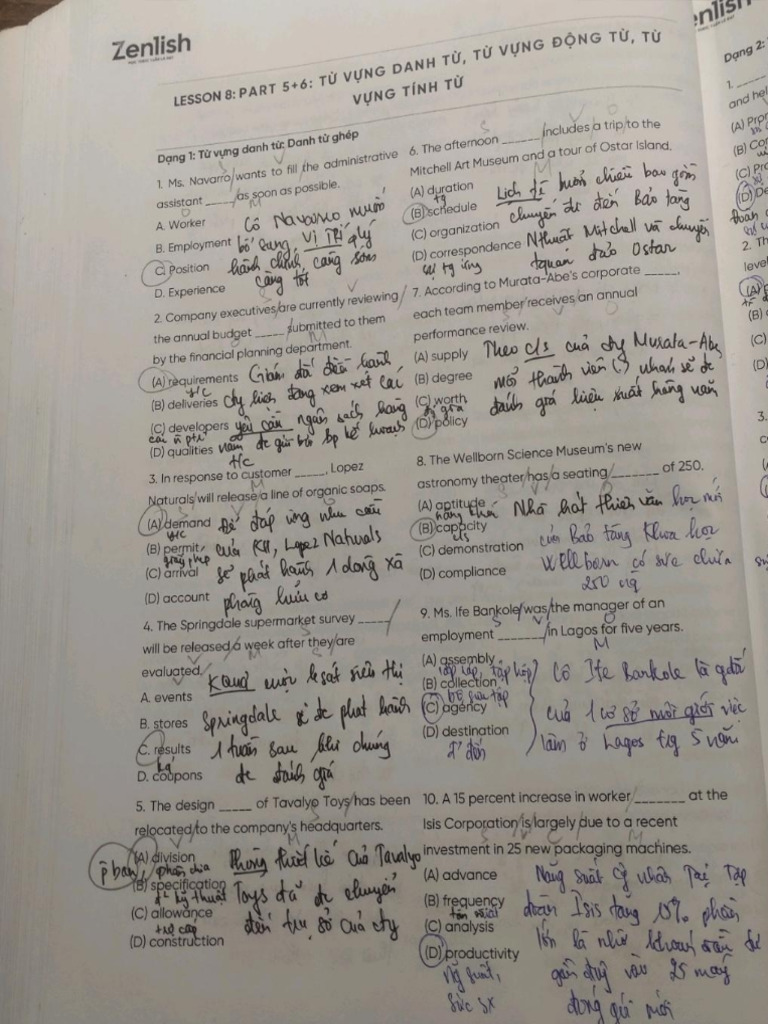 Zenlish
enlish
LESSON 8: PART 5+6: TỪ VỰNG DANH TỪ, TỪ VỰNG ĐỘNG TỪ, TỪ
VỰNG TÍNH TỪ
Dạng 1: Từ vựng danh từ: Danh từ ghép
1. Ms. Navarro wants to fill the administrative
assistant _____ as soon as possible.
A. Worker
Cô Navarro muốn
B. Employment
bổ sung vị trí
C. Position
hành chính càng sớm
D. Experience
càng tốt
2. Company executives are currently reviewing
the annual budget _____ submitted to them
by the financial planning department.
(A) requirements
(B) deliveries
đang xem xét các
(C) developers
yêu cầu ngân sách hàng
(D) qualities
3. In response to customer _____, Lopez
Naturals will release a line of organic soaps.
(A) demand
Để đáp ứng nhu cầu
(B) permit
giấy phép
của KH, Lopez Naturals
(C) arrival
sẽ phát hành 1 dòng xà
(D) account
phòng hữu cơ
4. The Springdale supermarket survey _____
will be released a week after they are
evaluated.
A. events
B. stores
Springdale sẽ đc phát hành
C. results
1 tuần sau khi chúng
D. coupons
đc đánh giá
5. The design _____ of Tavalyo Toys has been
relocated to the company's headquarters.
(A) division
Phòng thiết kế của Tavalyo
(B) specification
Toys đã đc chuyển
(C) allowance
trợ cấp
đến trụ sở của cty
(D) construction
6. The afternoon _____ includes a trip to the
Mitchell Art Museum and a tour of Ostar Island.
(A) duration
(B) schedule
chuyến đi đến Bảo tàng
(C) organization
(D) correspondence
Nthuật Mitchell và chuyến
tquan đảo Ostar
7. According to Murata-Abe's corporate _____,
each team member receives an annual
performance review.
(A) supply
Theo c/s của cty Murata-Abe
(B) degree
(C) worth
đánh giá hiệu suất hàng năm
(D) policy
8. The Wellborn Science Museum's new
astronomy theater has a seating _____ of 250.
(A) aptitude
Nhà hát thiên văn học mới
(B) capacity
của Bảo tàng Khoa học
(C) demonstration
Wellborn có sức chứa
(D) compliance
250
9. Ms. Ife Bankole was the manager of an
employment _____ in Lagos for five years.
(A) assembly
Cô Ife Bankole là gđốc
(B) collection
bộ sưu tập
(C) agency
của 1 cơ sở môi giới việc
(D) destination
làm ở Lagos trg 5 năm
10. A 15 percent increase in worker _____ at the
Isis Corporation is largely due to a recent
investment in 25 new packaging machines.
(A) advance
(B) frequency
tần suất
đoàn Isis tăng 15% phần
(C) analysis
(D) productivity
gần đây vào 25 máy
sức sx
đóng gói mới
Dạng 2:
1.
and hel
2. Th
level
3.